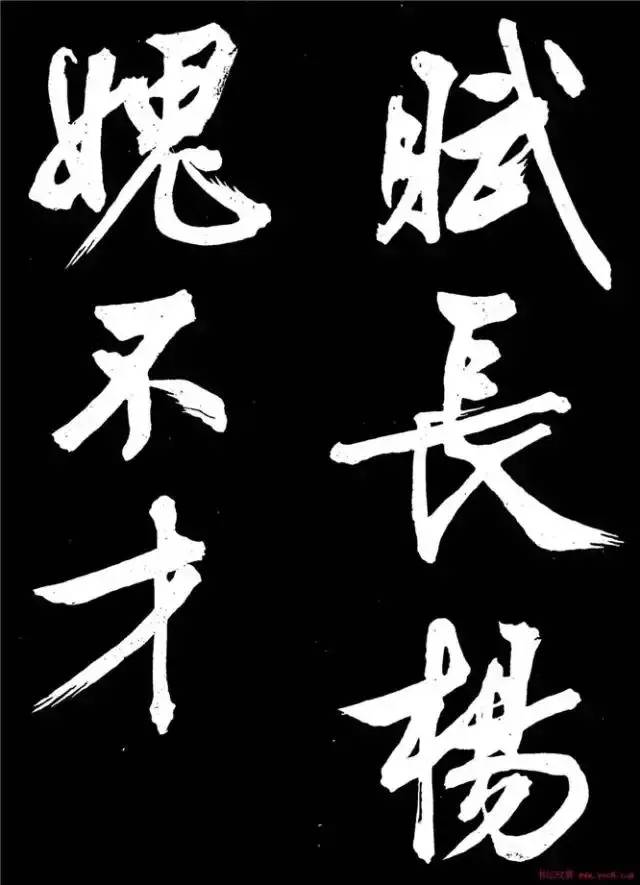 賦長楊
媿不才